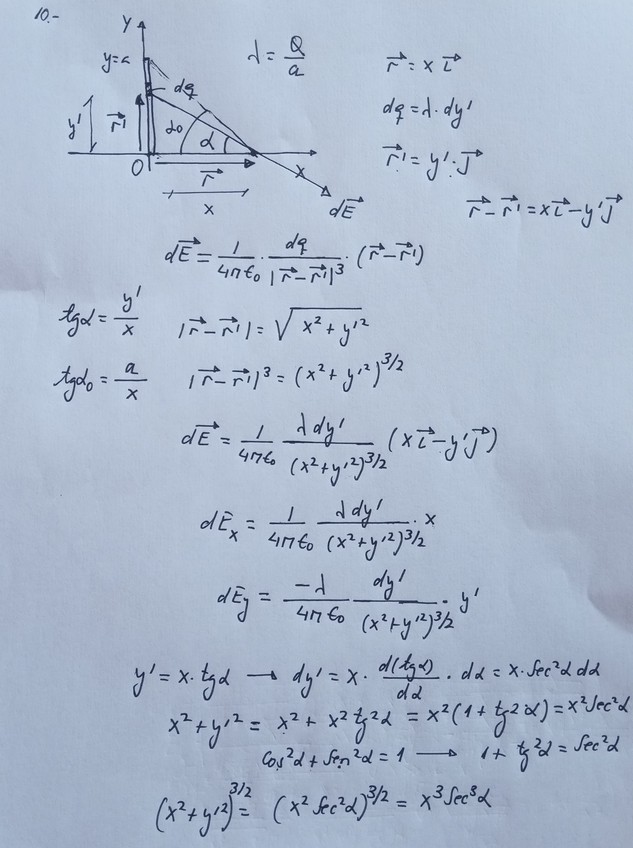 10.-
Y
y=a
dq
y'
r⃗'
α₀
α
O
r⃗
x
X
dE⃗
λ = Q/a
r⃗ = x i⃗
dq = λ·dy'
r⃗' = y'·j⃗
r⃗ - r⃗' = x i⃗ - y' j⃗
dE⃗ = 1/(4πε₀) · dq/|r⃗ - r⃗'|³ · (r⃗ - r⃗')
tgα = y'/x
|r⃗ - r⃗'| = √(x² + y'²)
tgα₀ = a/x
|r⃗ - r⃗'|³ = (x² + y'²)^3/2
dE⃗ = 1/(4πε₀) λdy'/(x² + y'²)^3/2 (x i⃗ - y' j⃗)
dEₓ = 1/(4πε₀) λdy'/(x² + y'²)^3/2 · x
dEy = -λ/(4πε₀) dy'/(x² + y'²)^3/2 · y'
y' = x·tgα → dy' = x · d(tgα)/dα · dα = x·sec²α dα
x² + y'² = x² + x² tg²α = x²(1 + tg²α) = x² sec²α
cos²α + sen²α = 1 → 1 + tg²α = sec²α
(x² + y'²)^3/2 = (x² sec²α)^3/2 = x³ sec³α